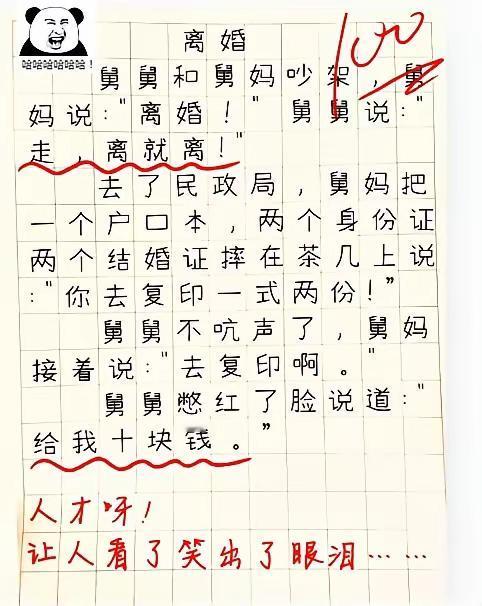 哈哈哈哈哈哈哈!
离婚
100
舅舅和舅妈吵架,舅
妈说:"离婚!" 舅舅说:"
走,离就离!"
去了民政局,舅妈把
一个户口本,两个身份证
两个结婚证摔在茶几上说
:"你去复印一式两份!”
舅舅不吭声了,舅妈
接着说:"去复印啊。"
舅舅憋红了脸说道:"
给我十块钱。”
人才呀!
让人看了笑出了眼泪……